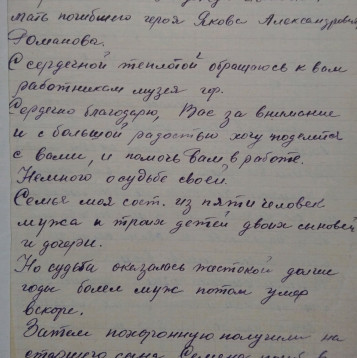 мать погибшего героя Якова Александрович
Романова.
С сердечной теплотой обращаюсь к вам
работникам музея гор.
Сердечно благодарю, Вас за внимание
и с большой радостью хочу поделится
с вами, и помочь Вам в работе.
Немного о судьбе своей.
Семья моя сост. из пяти человек
мужа и троих детей двоих сыновей
и дочери.
Но судьба оказалась жестокой долгие
годы болел муж потом умер
вскоре.
Затем похоронную получили на
старшего сына Семена